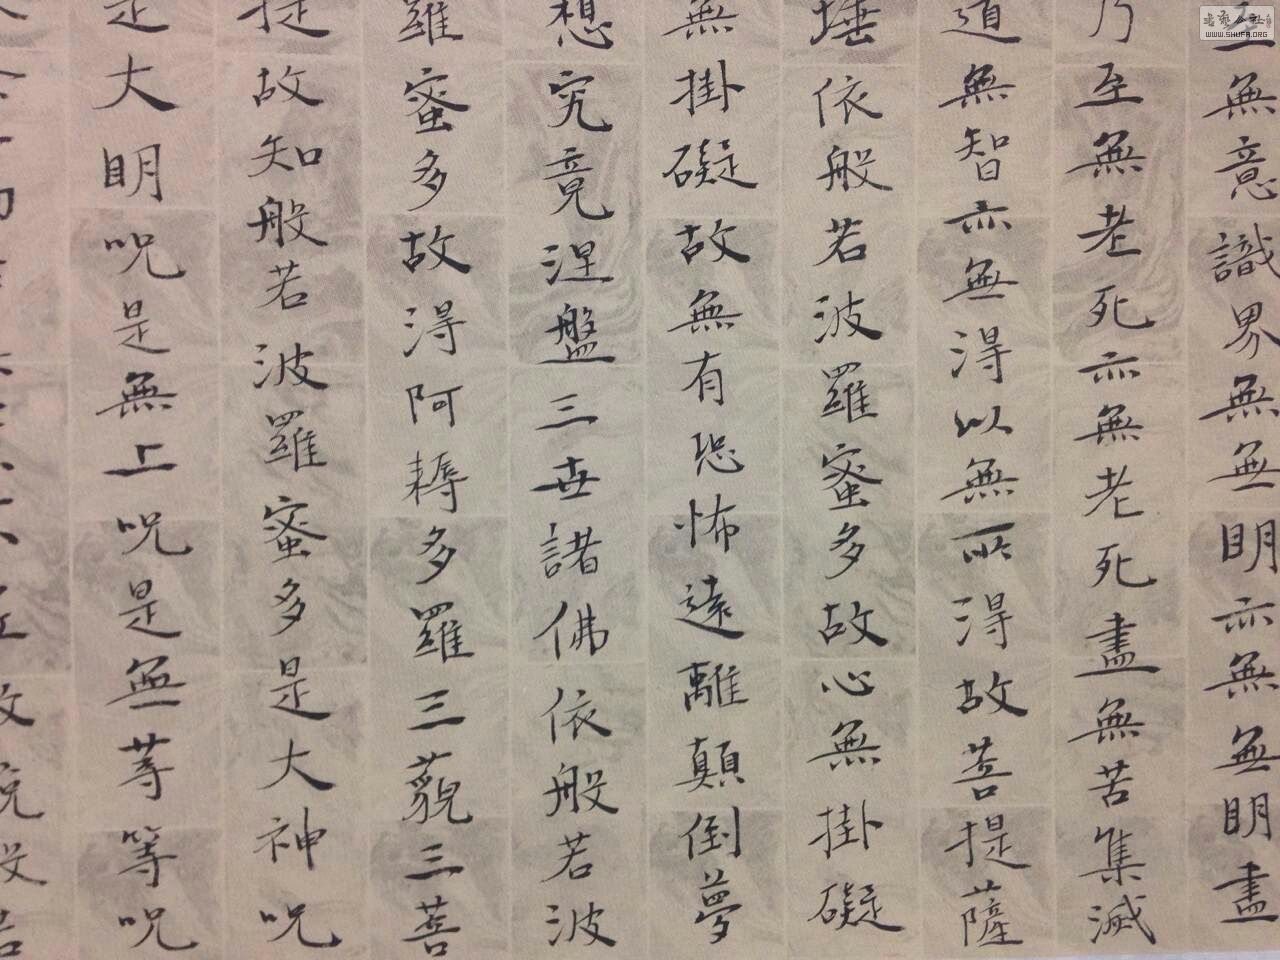 至無意識界無無明亦無無明盡
乃至無老死亦無老死盡無苦集滅
道無智亦無得以無所得故菩提薩
埵依般若波羅蜜多故心無掛礙
無掛礙故無有恐怖遠離顛倒夢
想究竟涅盤三世諸佛依般若波
羅蜜多故得阿耨多羅三藐三菩
提故知般若波羅蜜多是大神呪
是大明呪是無上呪是無等等呪
故說般若
WWW.SHUFA.ORG